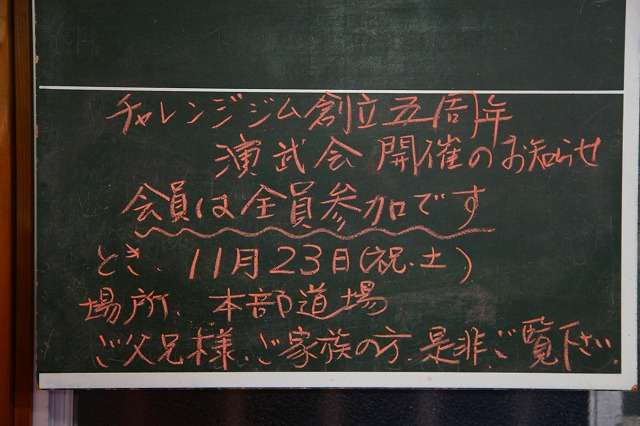 チャレンジジム創立五周年
演武会開催のお知らせ
会員は全員参加です
とき、11月23日(祝・土)
場所、本部道場
ご父兄様、ご家族の方、是非、ご覧下さい、